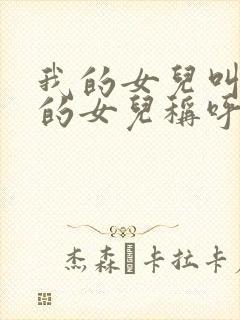 我的女兒叫
的女兒稱呼
杰森·卡拉卡